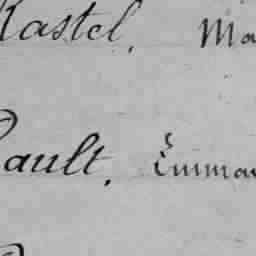 Kastel, Ma
ault, Emma